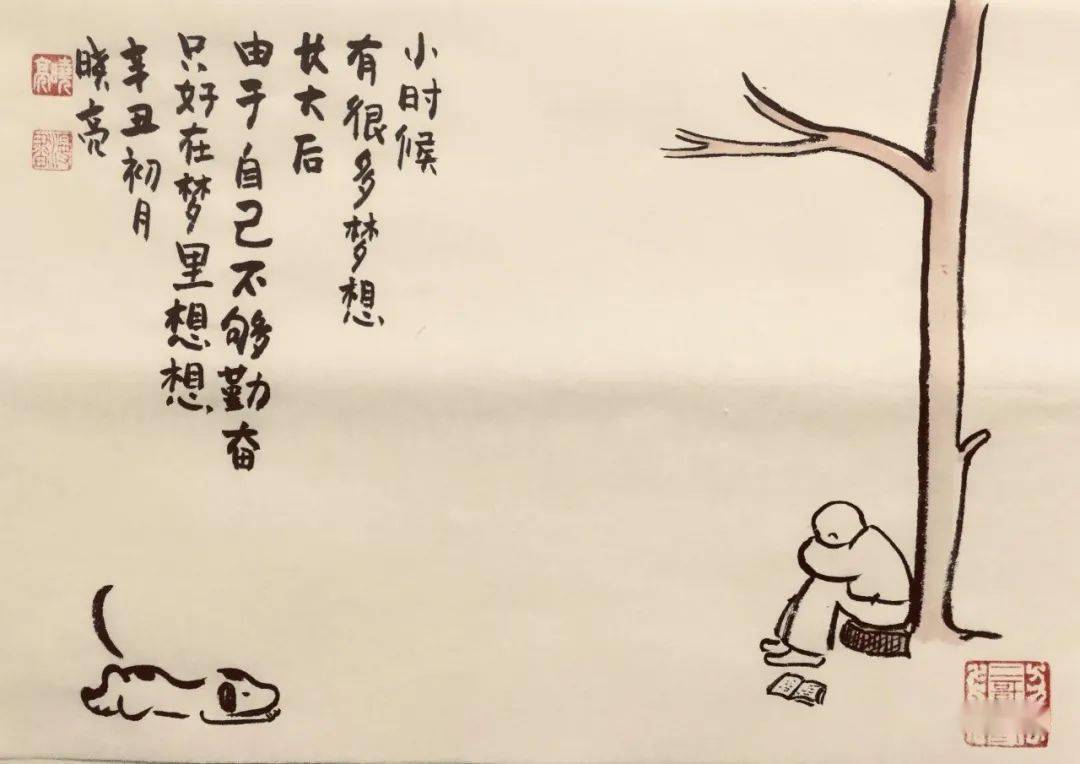 小时候
有很多梦想
长大后
由于自己不够勤奋
只好在梦里想想
辛丑初月
晓亮